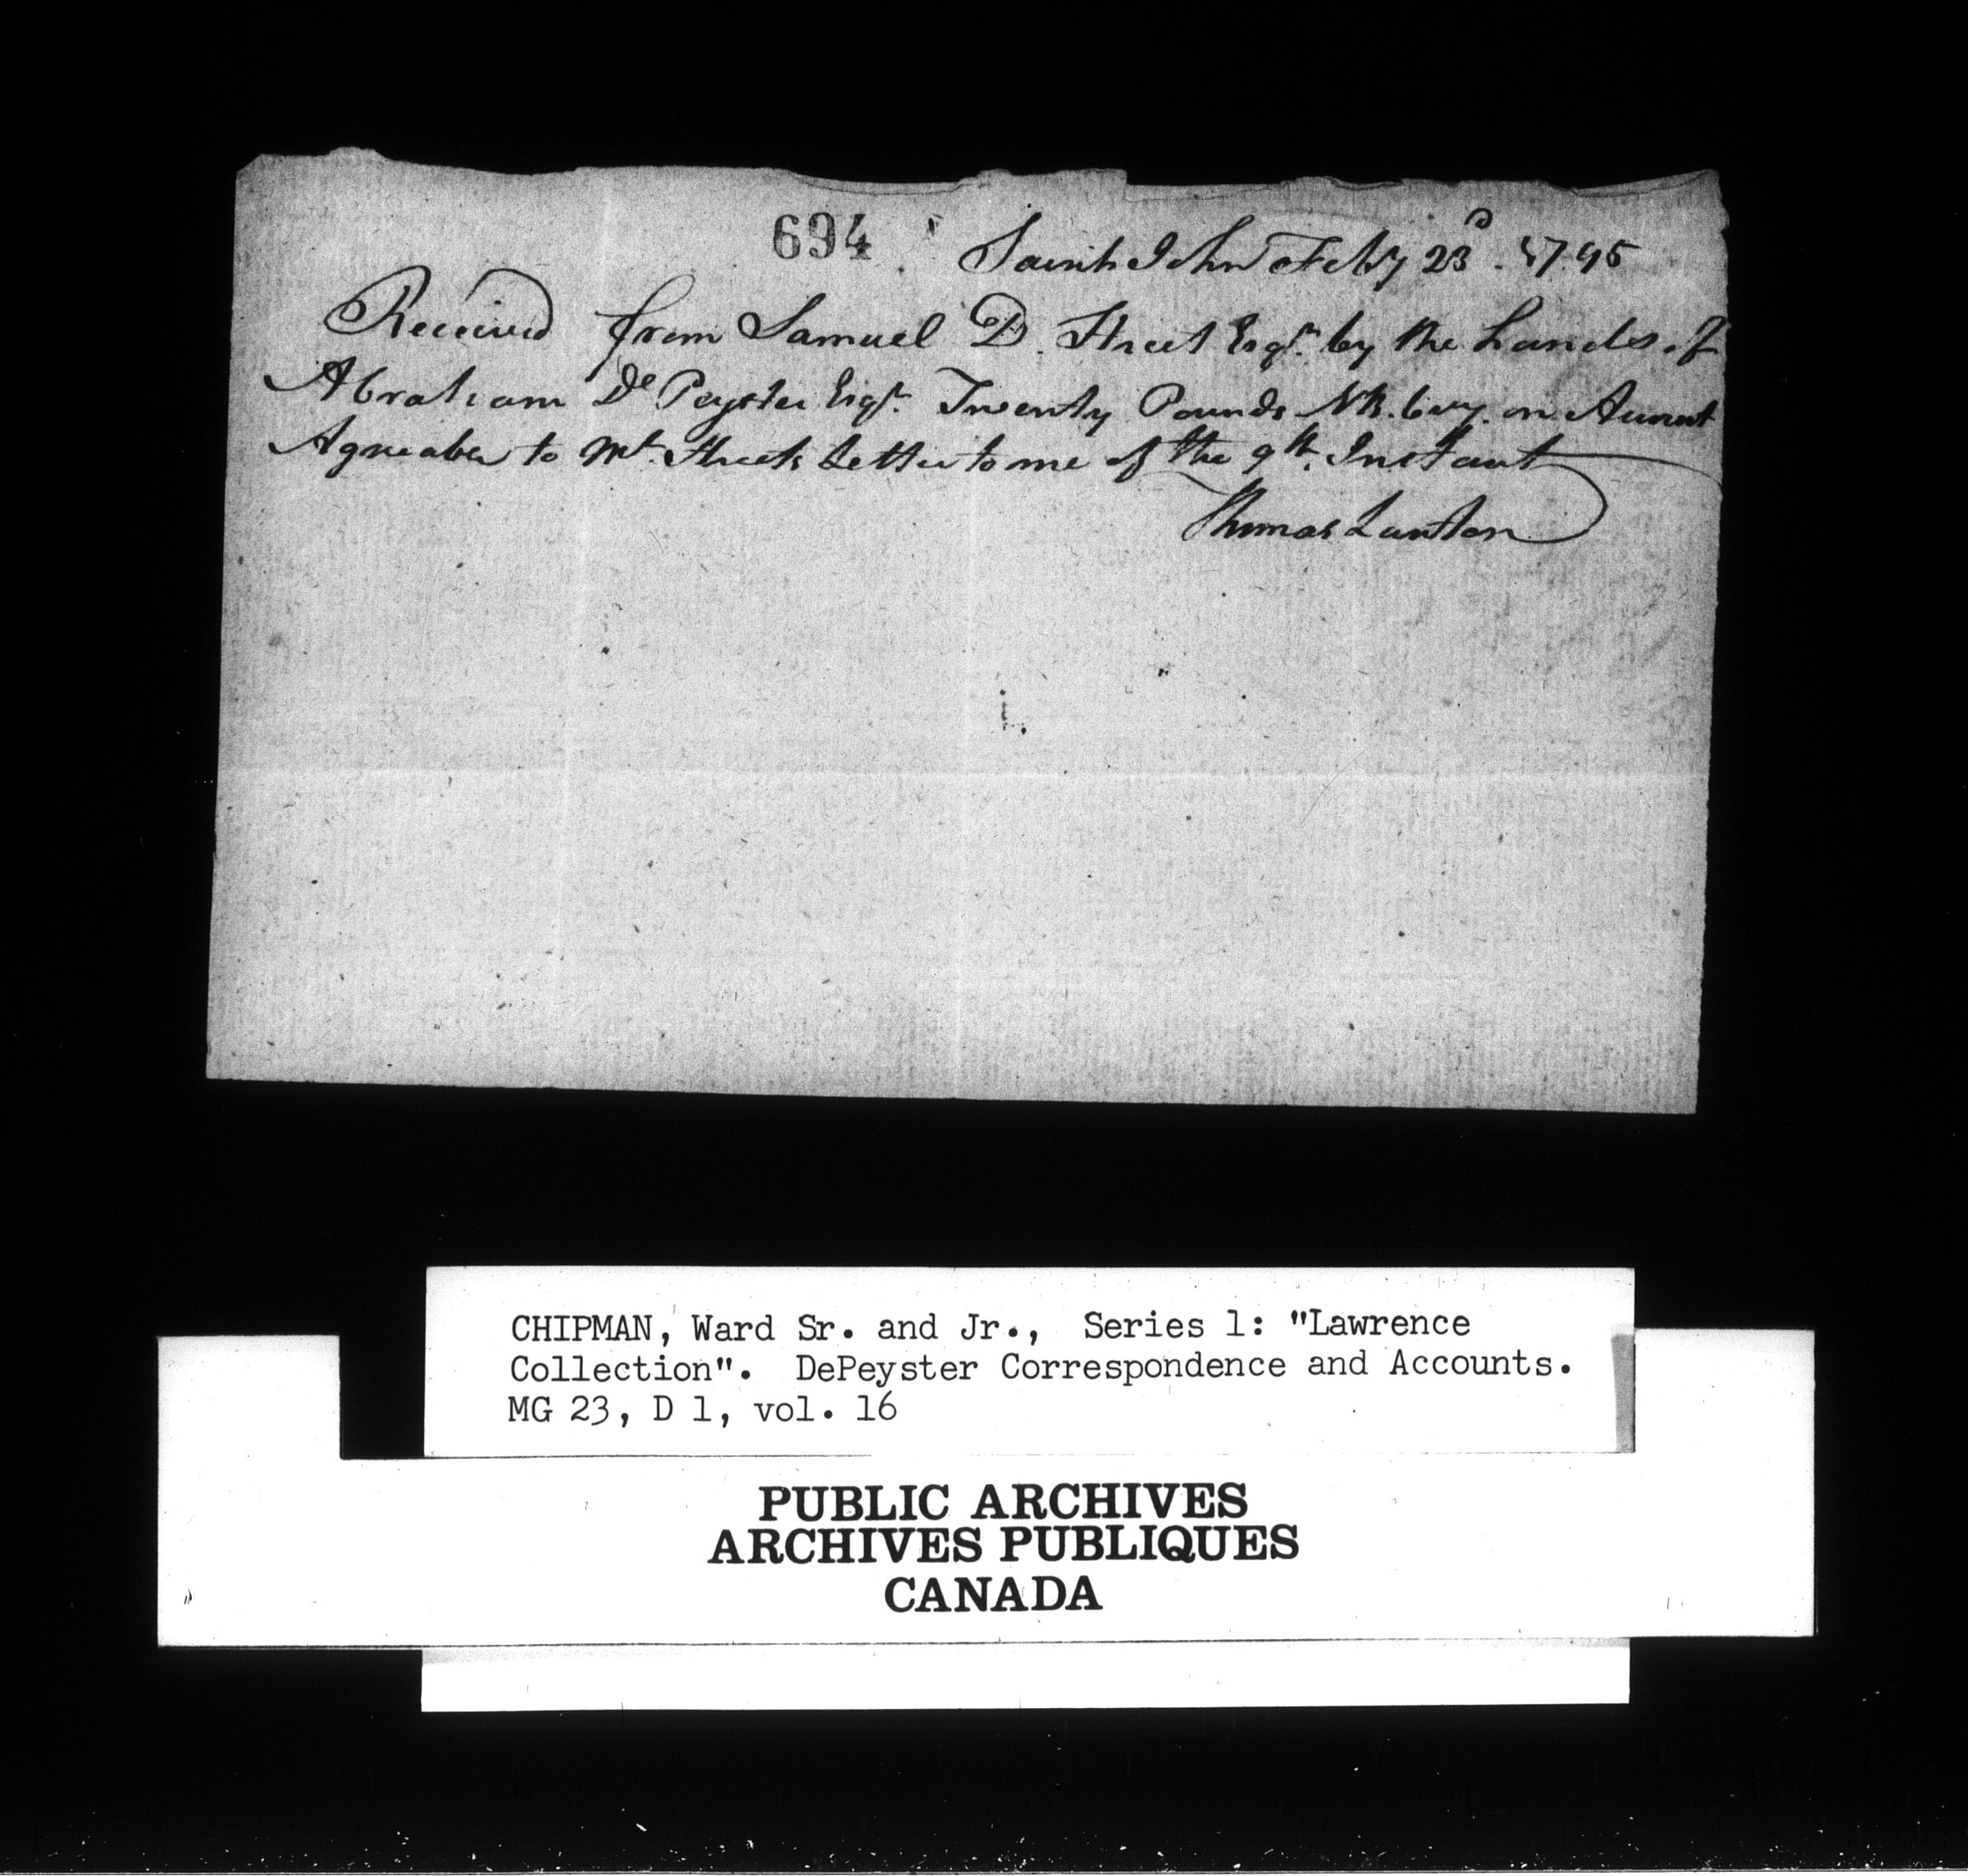 694
Saint John Feby 23d. 1795
Received from Samuel D. Street Esqr. by the hands of
Abraham De Peyster Esqr. Twenty Pounds NB. Cuy. on Account
Agreable to Mr. Streets Letter to me of the 9th. Instant
Thomas Lawton
CHIPMAN, Ward Sr. and Jr., Series 1: "Lawrence
Collection". DePeyster Correspondence and Accounts.
MG 23, D 1, vol. 16
PUBLIC ARCHIVES
ARCHIVES PUBLIQUES
CANADA